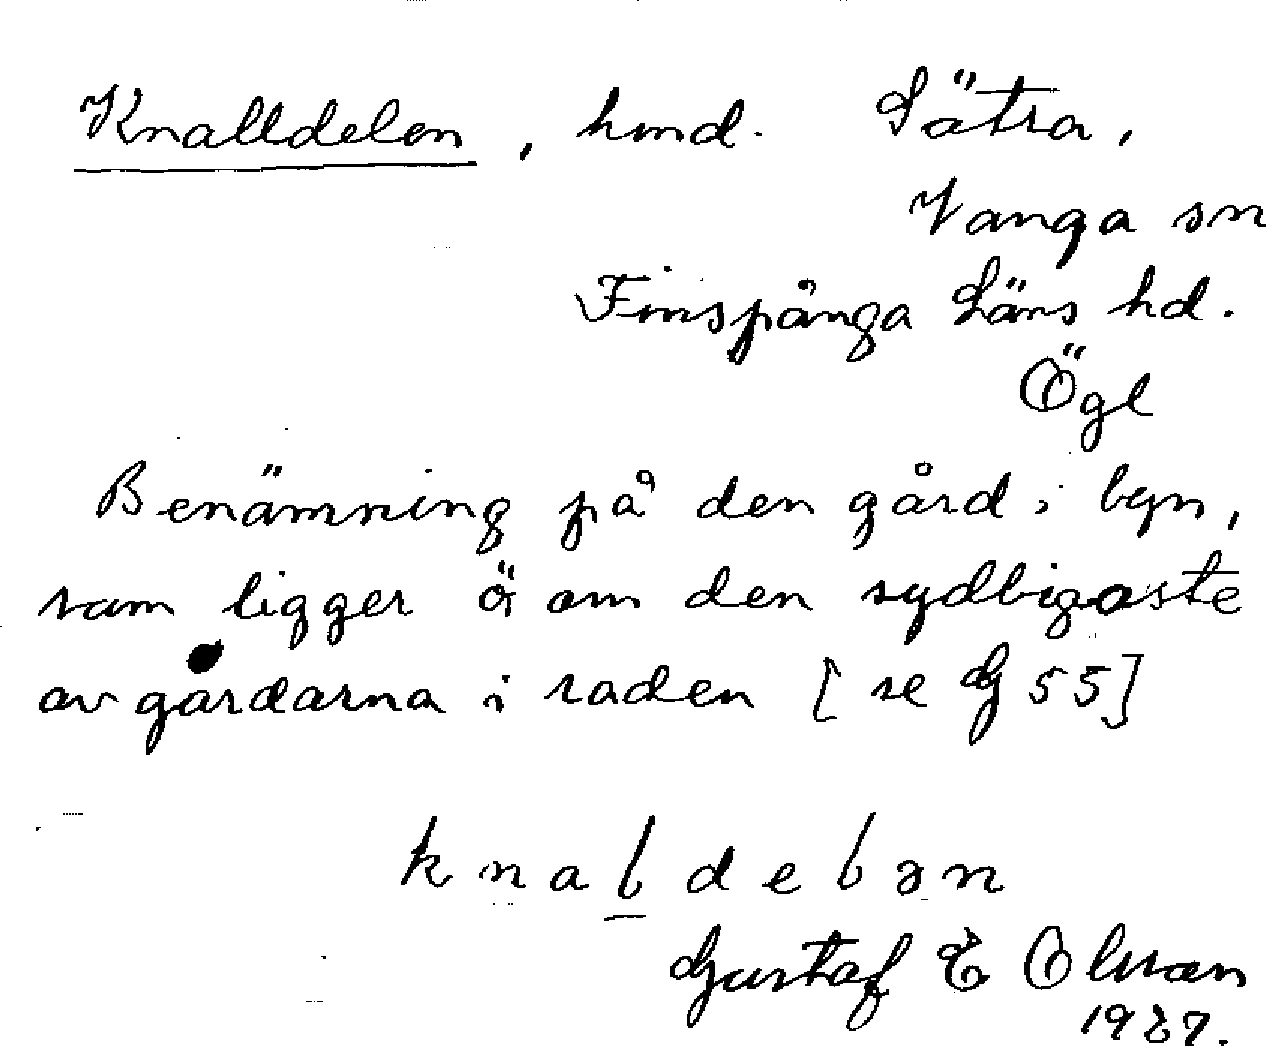 Knalldelen, hmd. Sätra,
Vånga sn
Finspånga Läns hd.
Ögl
Benämning på den gård i byn,
som ligger ö om den sydligaste
av gårdarna i raden [se G 55]
knaldelən
Gustaf E Olsson
1927.